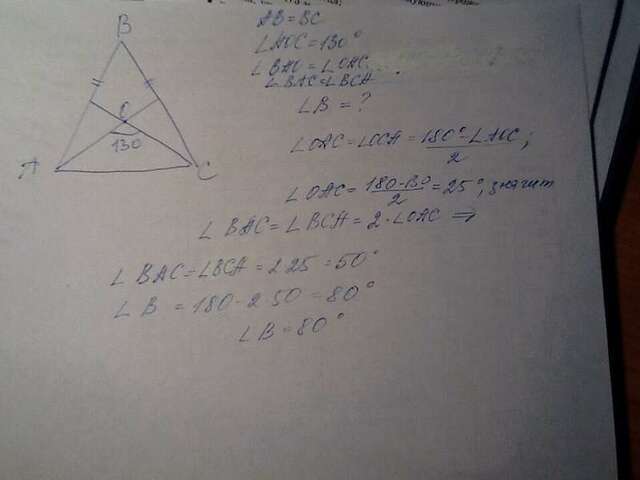 B
O
130
A
C
AB = BC
∠AOC = 130°
∠BAO = ∠OAC
∠BAC = ∠BCA
∠B = ?
∠OAC = ∠OCA = (180° - ∠AOC)/2;
∠OAC = (180-130)/2 = 25°, значит
∠BAC = ∠BCA = 2·∠OAC ⇒
∠BAC = ∠BCA = 2·25 = 50°
∠B = 180 - 2·50 = 80°
∠B = 80°